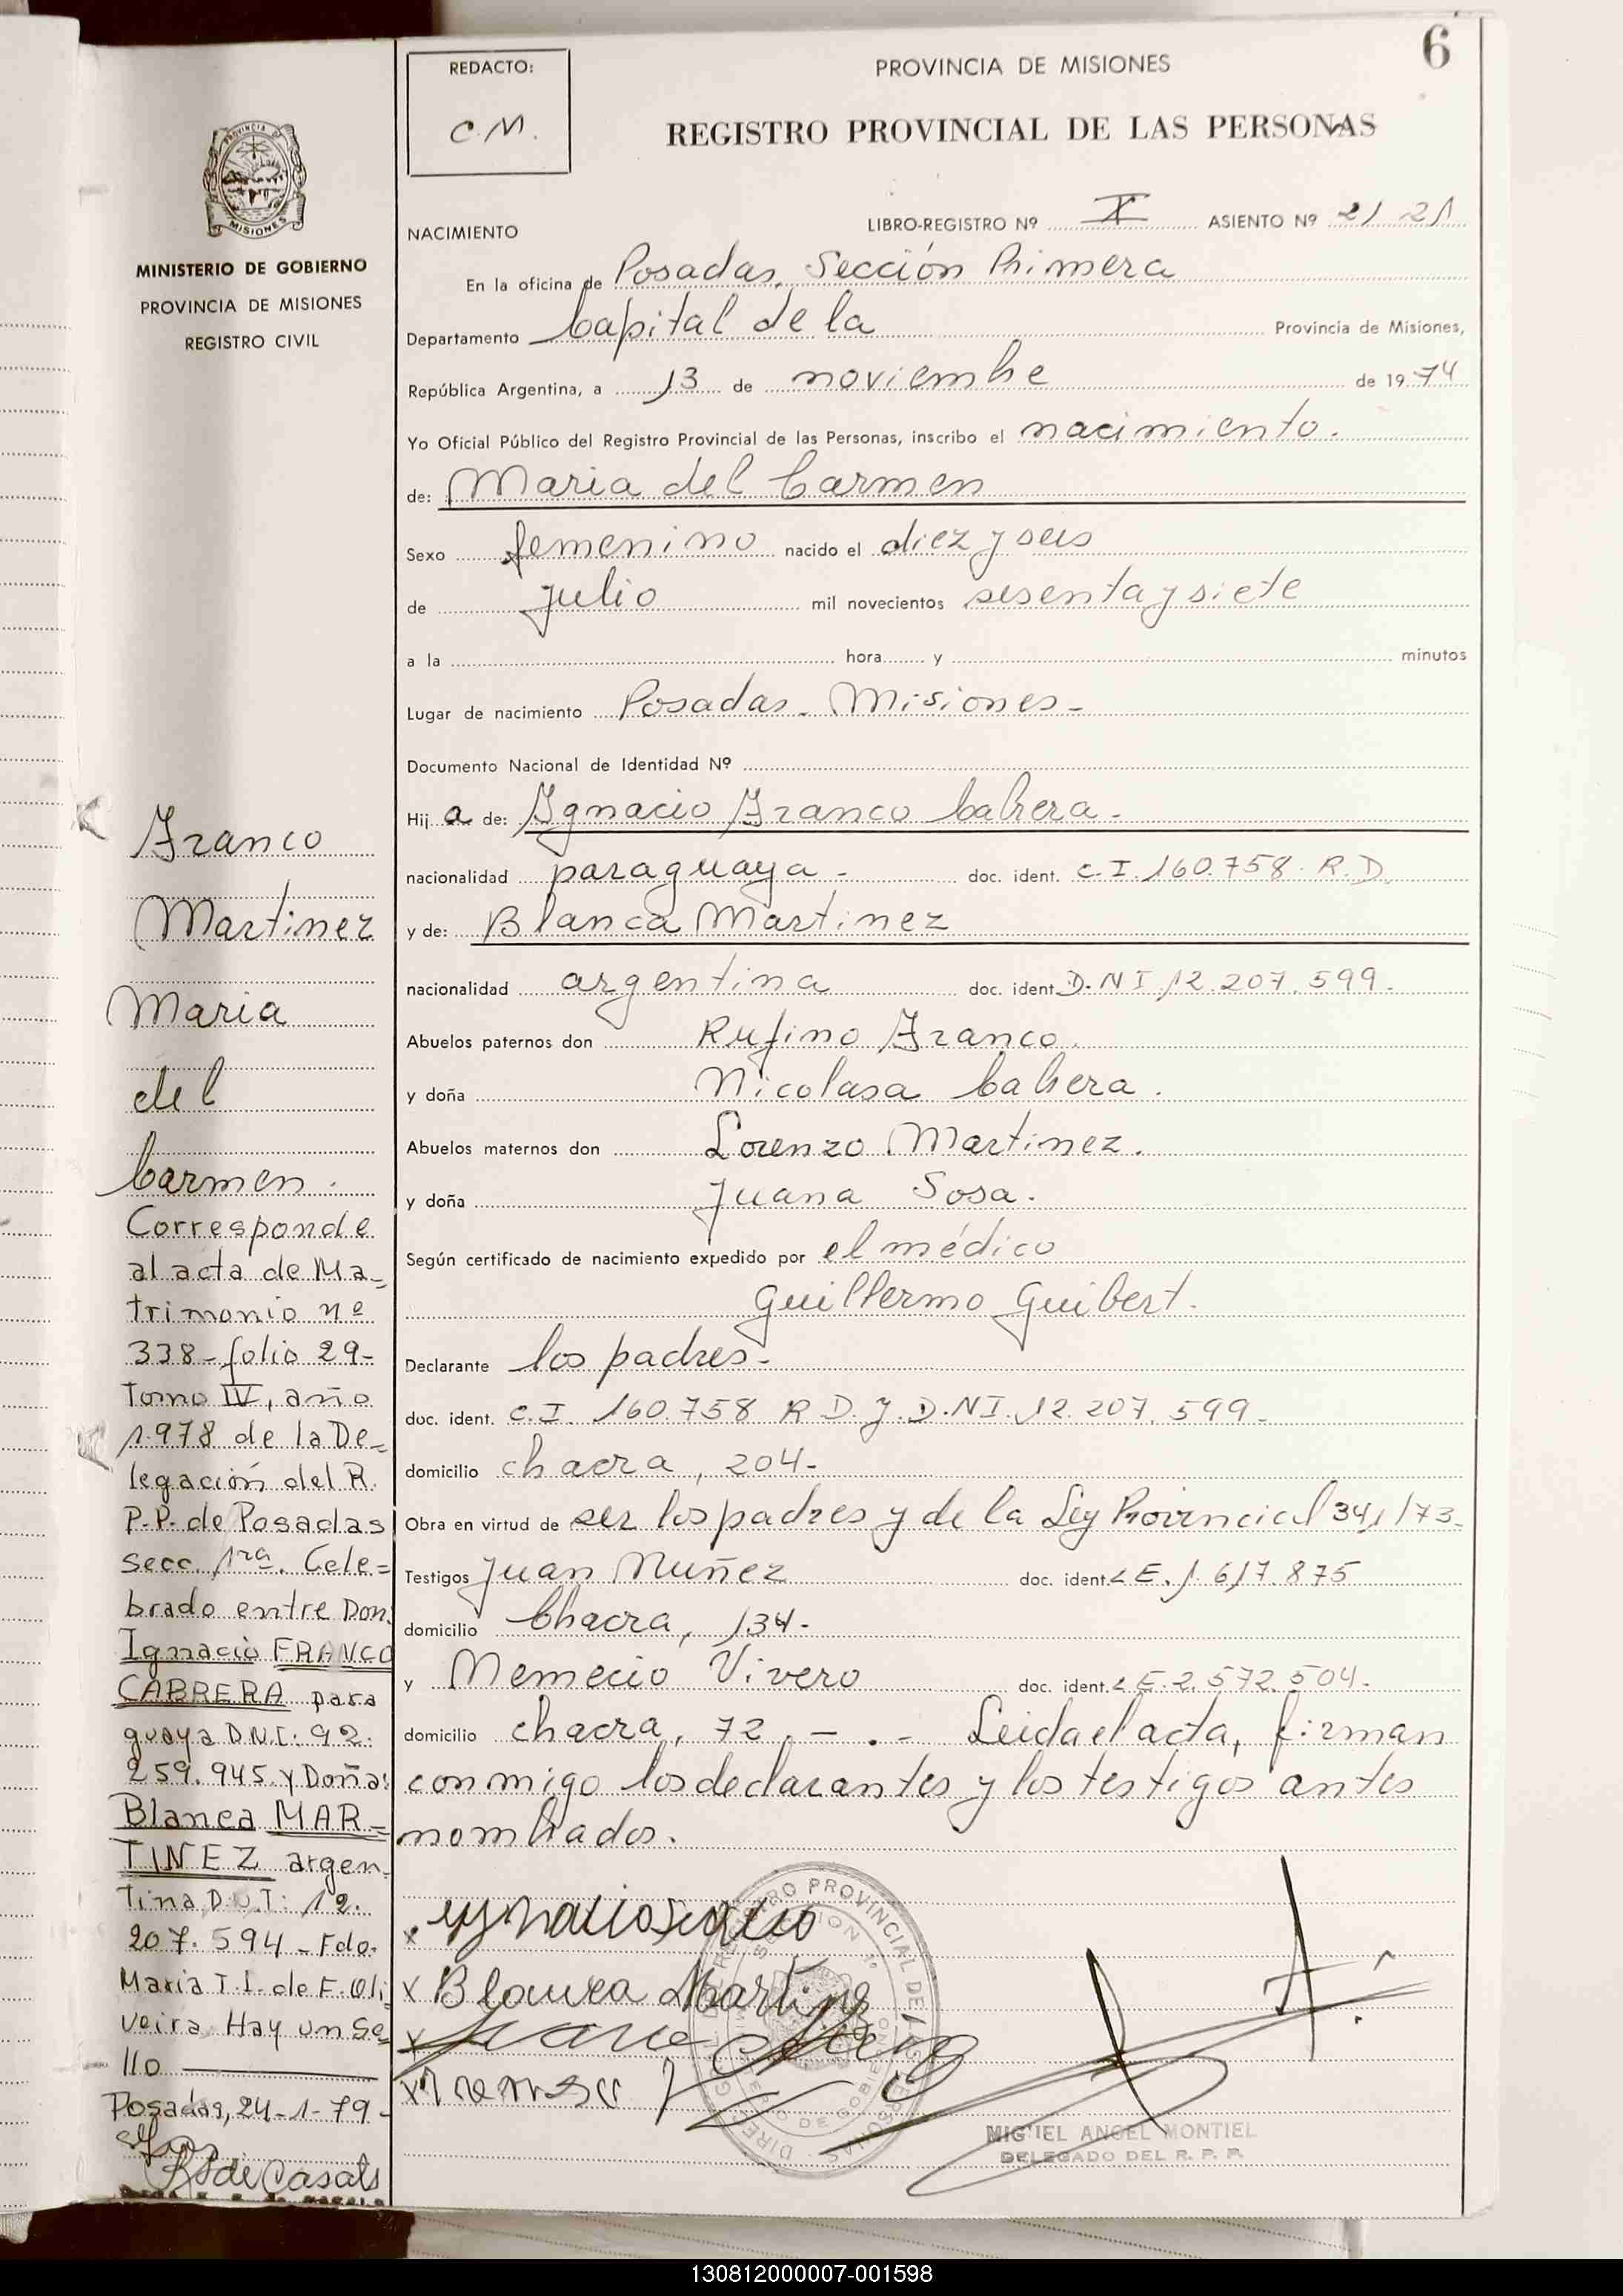 6
REDACTO:
C.M.
PROVINCIA DE MISIONES
REGISTRO PROVINCIAL DE LAS PERSONAS
PROVINCIA DE
MISIONES
MINISTERIO DE GOBIERNO
PROVINCIA DE MISIONES
REGISTRO CIVIL
NACIMIENTO LIBRO-REGISTRO Nº X ASIENTO Nº 2121
En la oficina de Posadas, Sección Primera
Departamento Capital de la Provincia de Misiones,
República Argentina, a 13 de noviembre de 1974
Yo Oficial Público del Registro Provincial de las Personas, inscribo el nacimiento.
de: Maria del Carmen
Sexo femenino nacido el diez y seis
de julio mil novecientos sesenta y siete
a la hora y minutos
Lugar de nacimiento Posadas - Misiones -
Documento Nacional de Identidad Nº
Hij a de: Ignacio Franco Cabrera -
nacionalidad paraguaya - doc. ident. C.I. 160.758. R.D.
y de: Blanca Martinez
nacionalidad argentina doc. ident. D.N.I 12.207.599.
Abuelos paternos don Rufino Franco.
y doña Nicolasa Cabrera.
Abuelos maternos don Lorenzo Martinez.
y doña Juana Sosa.
Según certificado de nacimiento expedido por el médico
Guillermo Guibert.
Declarante los padres -
doc. ident. C.I. 160.758 R.D. y D.N.I. 12.207.599.
domicilio chacra, 204-
Obra en virtud de ser los padres y de la Ley Provincial 341/73-
Testigos Juan Nuñez doc. ident. L E. 1.617.875
domicilio Chacra, 134-
y Nemecio Vivero doc. ident. L E. 2.572.504.
domicilio chacra, 72.-.- Leida el acta, firman
conmigo los declarantes y los testigos antes
nombrados.
x Blanca Martinez
MIGUEL ANGEL MONTIEL
DELEGADO DEL R. P. P.
Franco
Martinez
Maria
del
Carmen.
Corresponde
al acta de Ma-
trimonio nº
338-folio 29-
Tomo IV, año
1978 de la De-
legación del R.
P.P. de Posadas
secc. 1ra. Cele=
brado entre Don:
Ignacio FRANCO
CABRERA para
guaya D.N.I: 92.
259.945 y Doña:
Blanca MAR-
TINEZ argen-
tina D.N.I: 12.
207.594 - Fdo.
Maria T.I. de F. Oli
veira Hay un se
llo
Posadas, 24-1-79-
de Casals
130812000007-001598